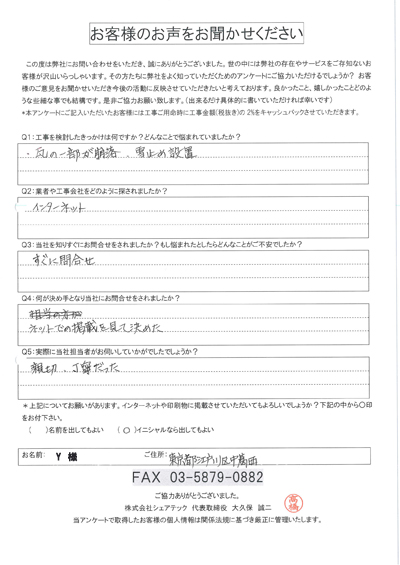 お客様のお声をお聞かせください
この度は弊社にお問い合わせをいただき、誠にありがとうございました。世の中には弊社の存在やサービスをご存知ないお
客様が沢山いらっしゃいます。その方たちに弊社をよく知っていただくためのアンケートにご協力いただけるでしょうか？ お客
様のご意見をお聞かせいただき今後の活動に反映させていただきたいと考えております。良かったこと、嬉しかったことどのよ
うな些細な事でも結構です。是非ご協力お願い致します。（出来るだけ具体的に書いていただければ幸いです）
*本アンケートにご記入いただいたお客様には工事ご用命時に工事金額(税抜き)の2%をキャッシュバックさせていただきます。
Q1:工事を検討したきっかけは何ですか？どんなことで悩まれていましたか？
・瓦の一部が崩落、雪止め設置
Q2:業者や工事会社をどのように探されましたか？
インターネット
Q3:当社を知りすぐにお問合せをされましたか？もし悩まれたとしたらどんなことがご不安でしたか？
すぐに問合せ
Q4:何が決め手となり当社にお問合せをされましたか？
ネットでの掲載を見て決めた
Q5:実際に当社担当者がお伺いしていかがでしたでしょうか？
親切、丁寧だった
＊上記についてお願いがあります。インターネットや印刷物に掲載させていただいてもよろしいでしょうか？下記の中から〇印
をお付下さい。
（　）名前を出してもよい　（〇）イニシャルなら出してもよい
お名前: Y 様　ご住所: 東京都江戸川区中葛西
FAX 03-5879-0882
ご協力ありがとうございました。
株式会社シェアテック 代表取締役 大久保 誠二
高橋
当アンケートで取得したお客様の個人情報は関係法規に基づき厳正に管理いたします。